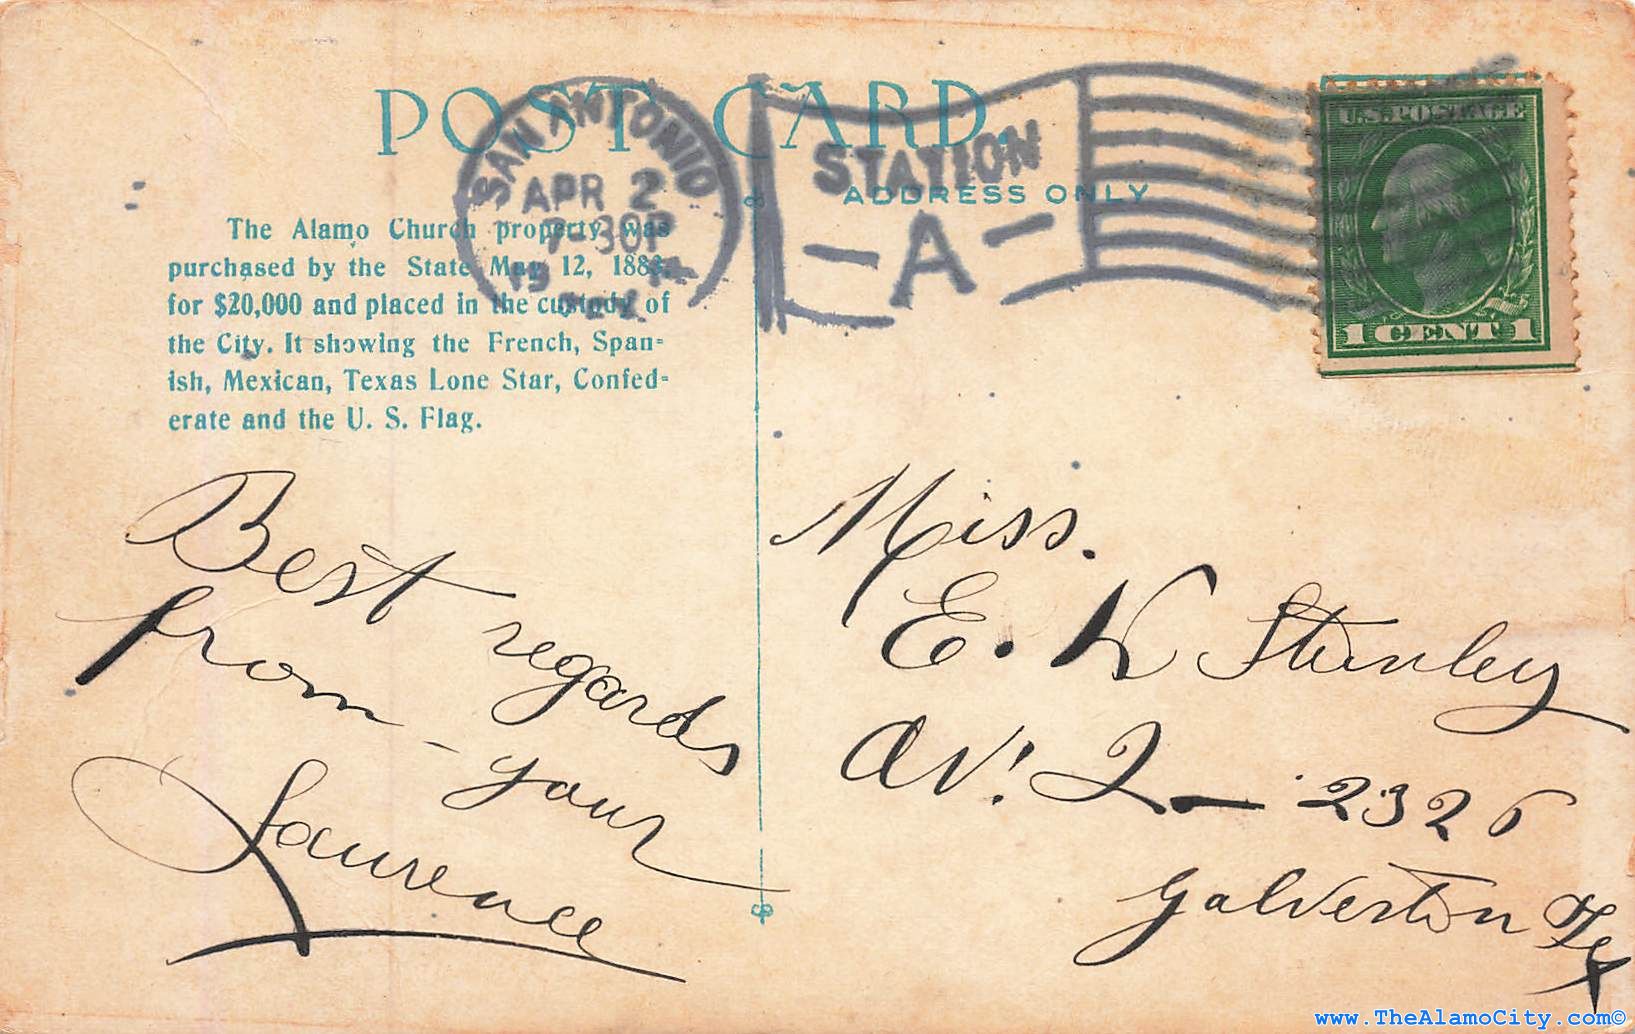 POST CARD.
SAN ANTONIO
APR 2
7-30P
TEX.
STATION
- A -
ADDRESS ONLY
U.S. POSTAGE
1 CENT 1
The Alamo Church property was
purchased by the State May 12, 1883,
for $20,000 and placed in the custody of
the City. It showing the French, Span=
ish, Mexican, Texas Lone Star, Confed=
erate and the U. S. Flag.
Best regards
from - your
Laurence
Miss.
E. K Stanley
Av. Q - 2326
Galveston Tex
www.TheAlamoCity.com©